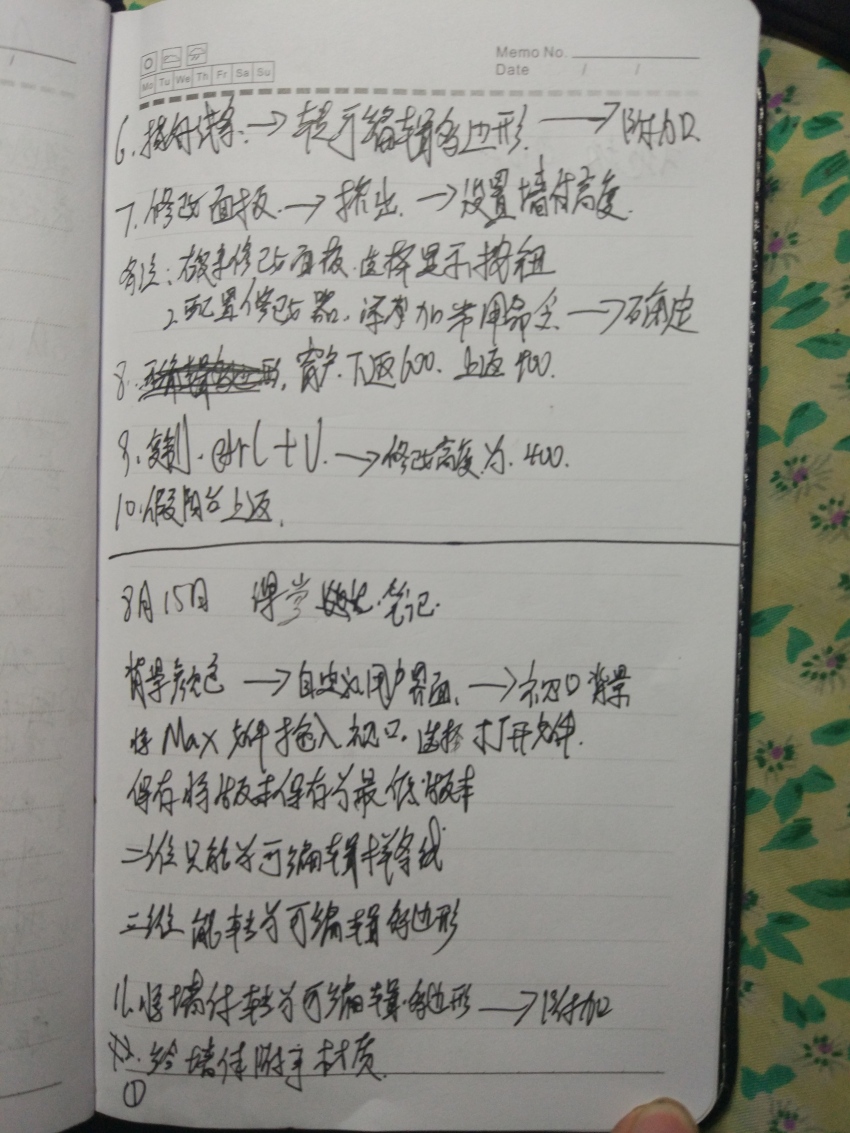 Memo No.
Mo Tu We Th Fr Sa Su
Date / /
6. 样条线条. → 转可编辑多边形. → 附加
7. 修改面板. → 挤出. → 设置墙体高度.
备注: 右键修改面板. 选择显示按钮
2. 配置修改器. 添加常用命令. → 确定
8. 窗户. 下返600. 上返400.
9. 复制. Ctrl+V. → 修改高度为. 400.
10. 假阳台上返.
8月15日 课堂 笔记.
背景颜色 → 自定义用户界面. → 视口背景
将Max文件拖入视口. 选择打开文件.
保存将版本保存为最低版本
二维只能为可编辑样条线
三维能转为可编辑多边形
11. 将墙体转为可编辑多边形 → 附加
12. 给墙体附予材质.
①